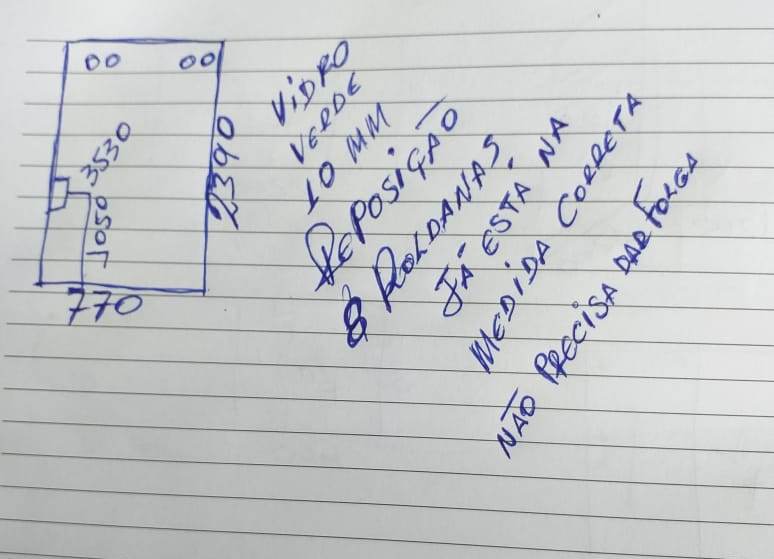 3530
1050
2390
770
VIDRO
VERDE
10 MM
REPOSIÇÃO
8 ROLDANAS.
JÁ ESTÁ NA
MEDIDA CORRETA
NÃO PRECISA DAR FOLGA